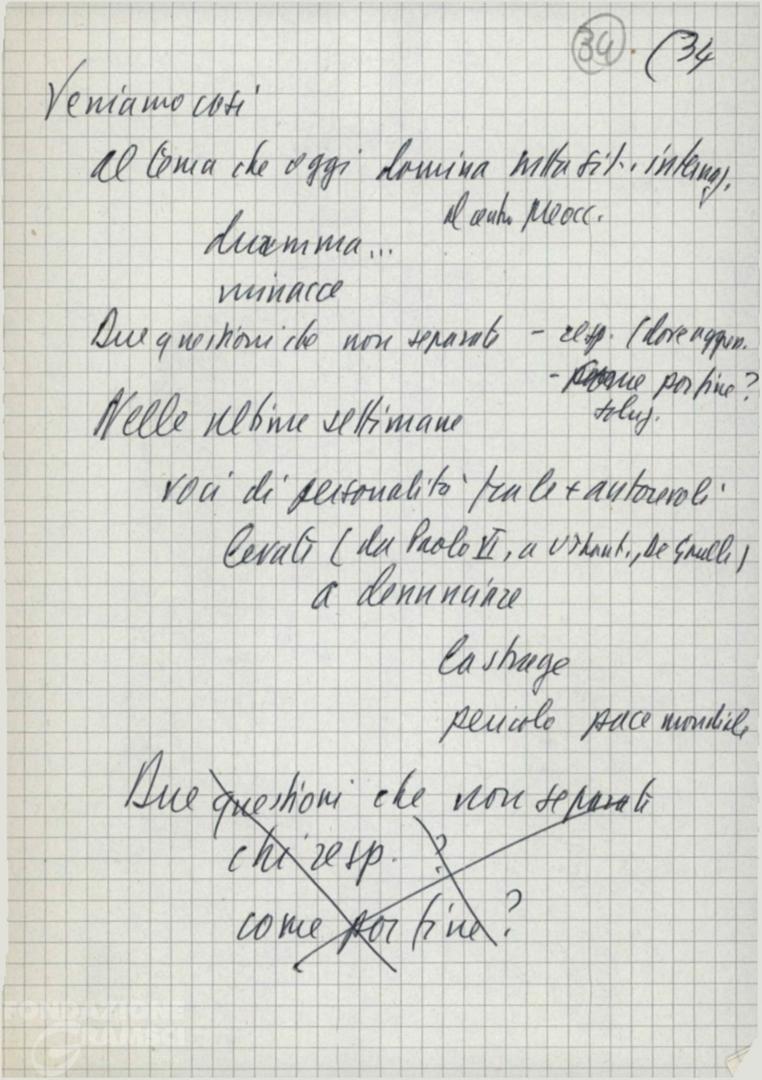 34 (34
Veniamo così
al tema che oggi domina tutta sit. internaz.
al centro preocc.
dramma...
minacce
Due questioni che non separate - resp. (dove
- come por fine?
soluz.
Nelle ultime settimane
voci di personalità tra le + autorevoli
levate (da Paolo VI, a U Thant, De Gaulle)
a denunciare
la strage
pericolo pace mondiale
Due questioni che non separate
chi resp. ?
come por fine?
FONDAZIONE
GRAMSCI